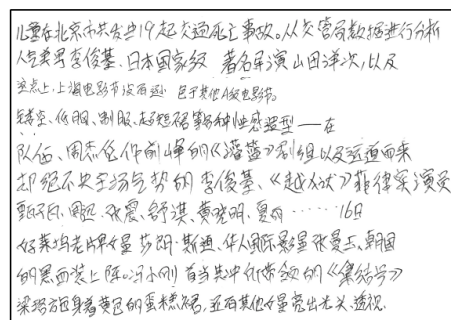 儿童在北京市共发生19起交通死亡事故。从交管局数据进行分析
人气柔男李俊基、日本国家级 著名导演山田洋次,以及
这点上,上海电影节没有逊 色于其他A级电影节。
镂空、低胸、制服、超短裙等各种性感造型——在
队伍、周杰伦作前峰的《灌篮》剧组以及远道而来
却绝不失主场气势的 李俊基、《越狱》菲律宾演员
甄子丹、周迅、张震、舒淇、黄晓明、夏雨……16日
好莱坞老牌女星莎朗·斯通、华人国际影星张曼玉、韩国
的黑西装上阵。冯小刚 首当其冲 他带领的《集结号》
梁洛施身着黄色的蛋糕裙,还有其他女星亮出光头、透视、